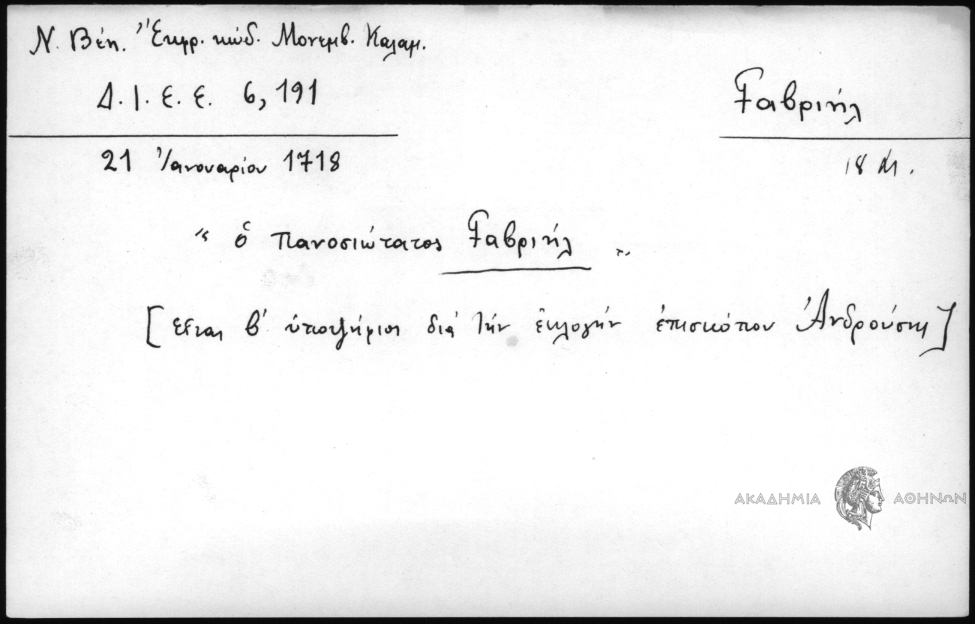 Ν. Βέη. Ἔκφρ. κώδ. Μονεμβ. Καλαμ.
Δ. Ι. Ε. Ε. 6, 191
Γαβριήλ
21 Ἰανουαρίου 1718
18 Μ.
“ ὁ πανοσιώτατος Γαβριήλ „
[εἶναι β' ὑποψήφιος διὰ τὴν ἐκλογὴν ἐπισκόπου Ἀνδρούσης]
ΑΚΑΔΗΜΙΑ ΑΘΗΝΩΝ